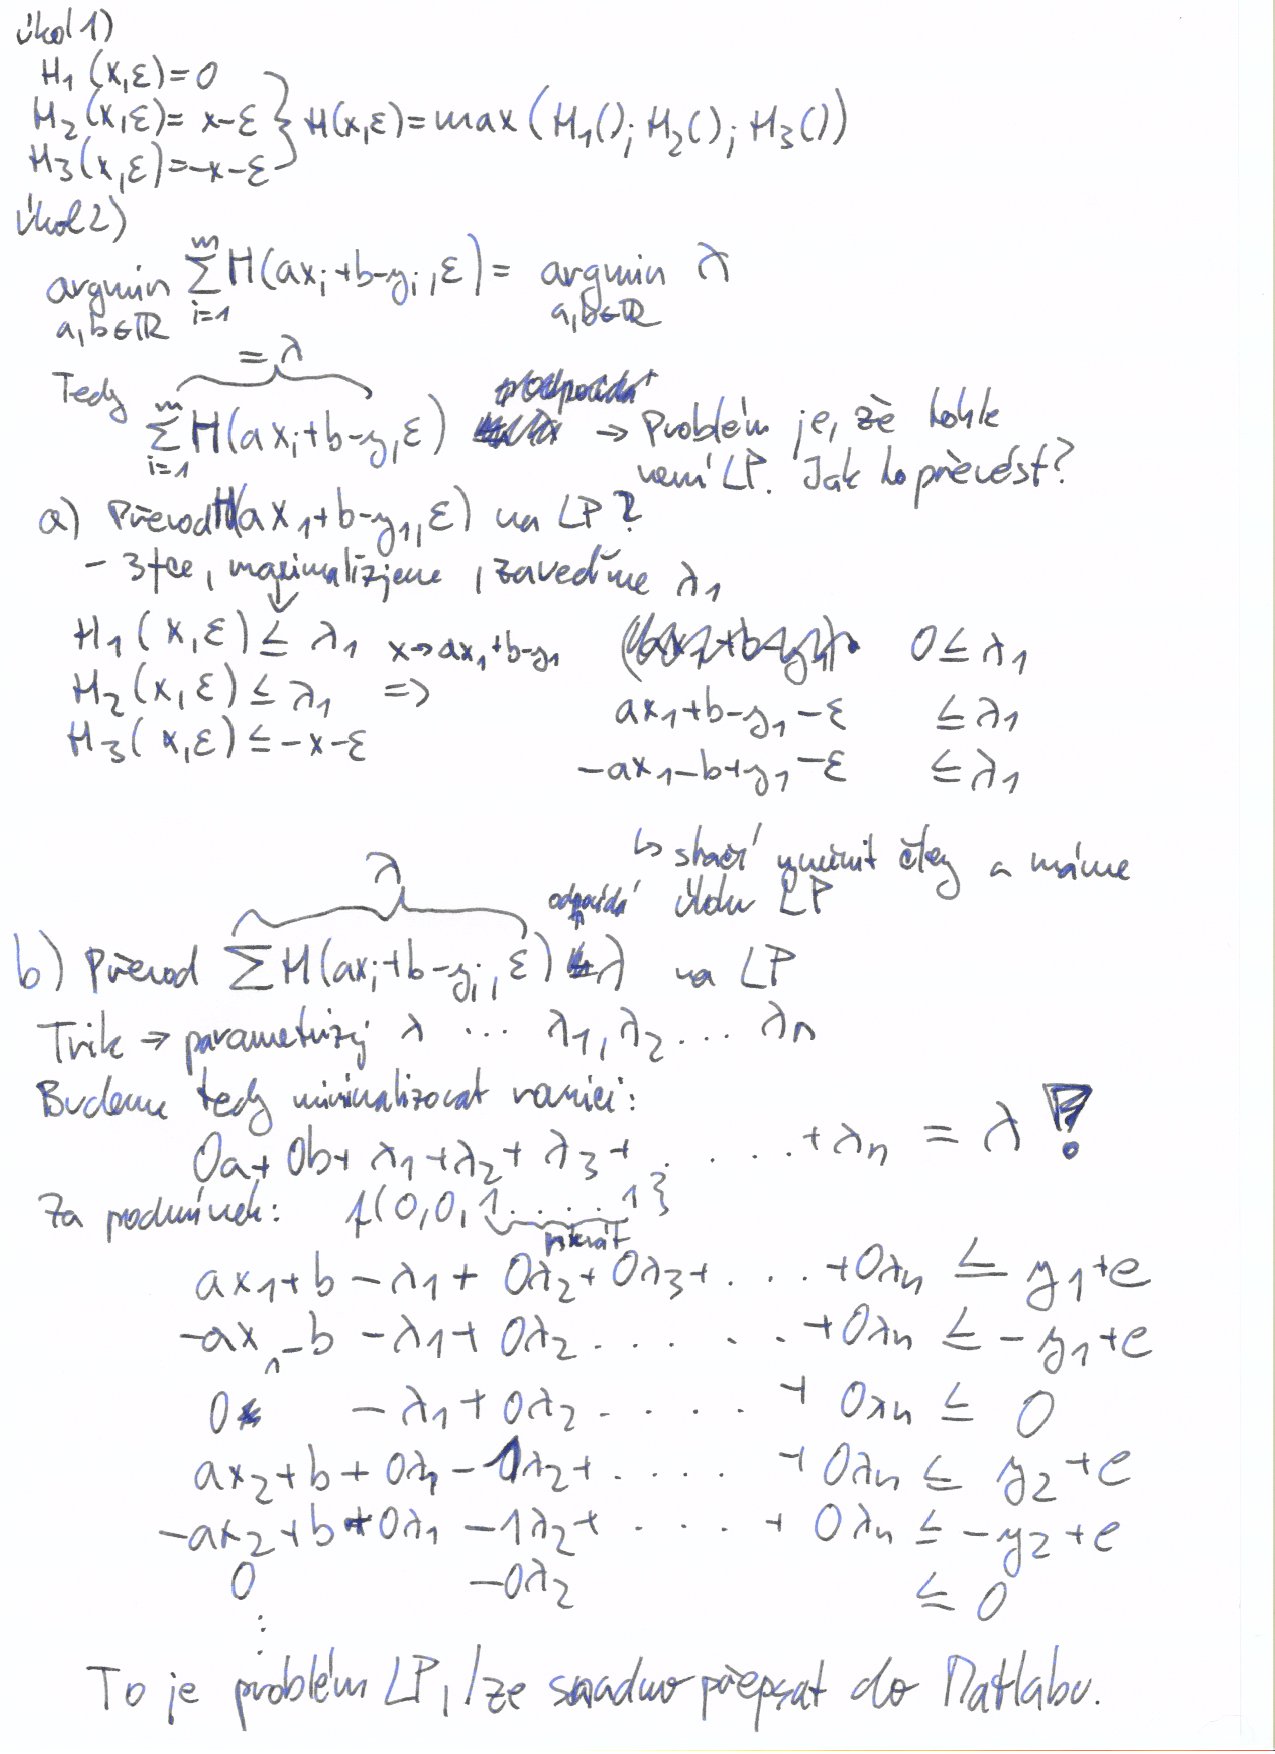 úkol 1)
H₁(x,ε)=0
H₂(x,ε)= x-ε } H(x,ε)=max(H₁(); H₂(); H₃())
H₃(x,ε)=-x-ε
úkol 2)
argmin ∑ H(axᵢ+b-yᵢ,ε) = argmin λ
a,b∈ℝ i=1 m a,b∈ℝ
= λ
Tedy ∑ H(axᵢ+b-y,ε) → Problém je, že tohle
i=1 m není LP. Jak ho převést?
a) Převod H(ax₁+b-y₁,ε) na LP?
- 3 fce, maximalizujeme, zavedime λ₁
H₁(x,ε) ≤ λ₁ x→ax₁+b-y₁ 0 ≤ λ₁
H₂(x,ε) ≤ λ₁ => ax₁+b-y₁-ε ≤ λ₁
H₃(x,ε) ≤ -x-ε -ax₁-b+y₁-ε ≤ λ₁
↳ stačí členy a máme
úlohu LP
λ
odpovídá
b) Převod ∑ H(axᵢ+b-yᵢ, ε) λ na LP
Trik ⇒ parametrizuj λ ... λ₁, λ₂ ... λn
Budeme tedy minimalizovat rovnici:
0a+0b+λ₁+λ₂+λ₃+.....+λn = λ !
Za podmínek: f{0,0,1.....1}
ax₁+b-λ₁+0λ₂+0λ₃+....+0λn ≤ y₁+e
-ax₁-b-λ₁+0λ₂......+0λn ≤ -y₁+e
0 -λ₁+0λ₂.....+0λn ≤ 0
ax₂+b+0λ₁-1λ₂+....+0λn ≤ y₂+e
-ax₂+b+0λ₁-1λ₂+....+0λn ≤ -y₂+e
0 -0λ₂ ≤ 0
⋮
To je problém LP, lze snadno přepsat do Matlabu.